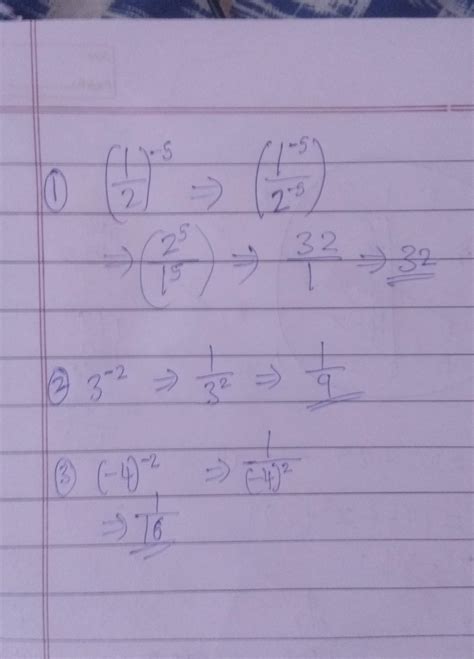 ① (1/2)^-5 ⇒ (1^-5/2^-5)
⇒ (2^5/1^5) ⇒ 32/1 ⇒ 32
② 3^-2 ⇒ 1/3^2 ⇒ 1/9
③ (-4)^-2 ⇒ 1/(-4)^2
⇒ 1/16